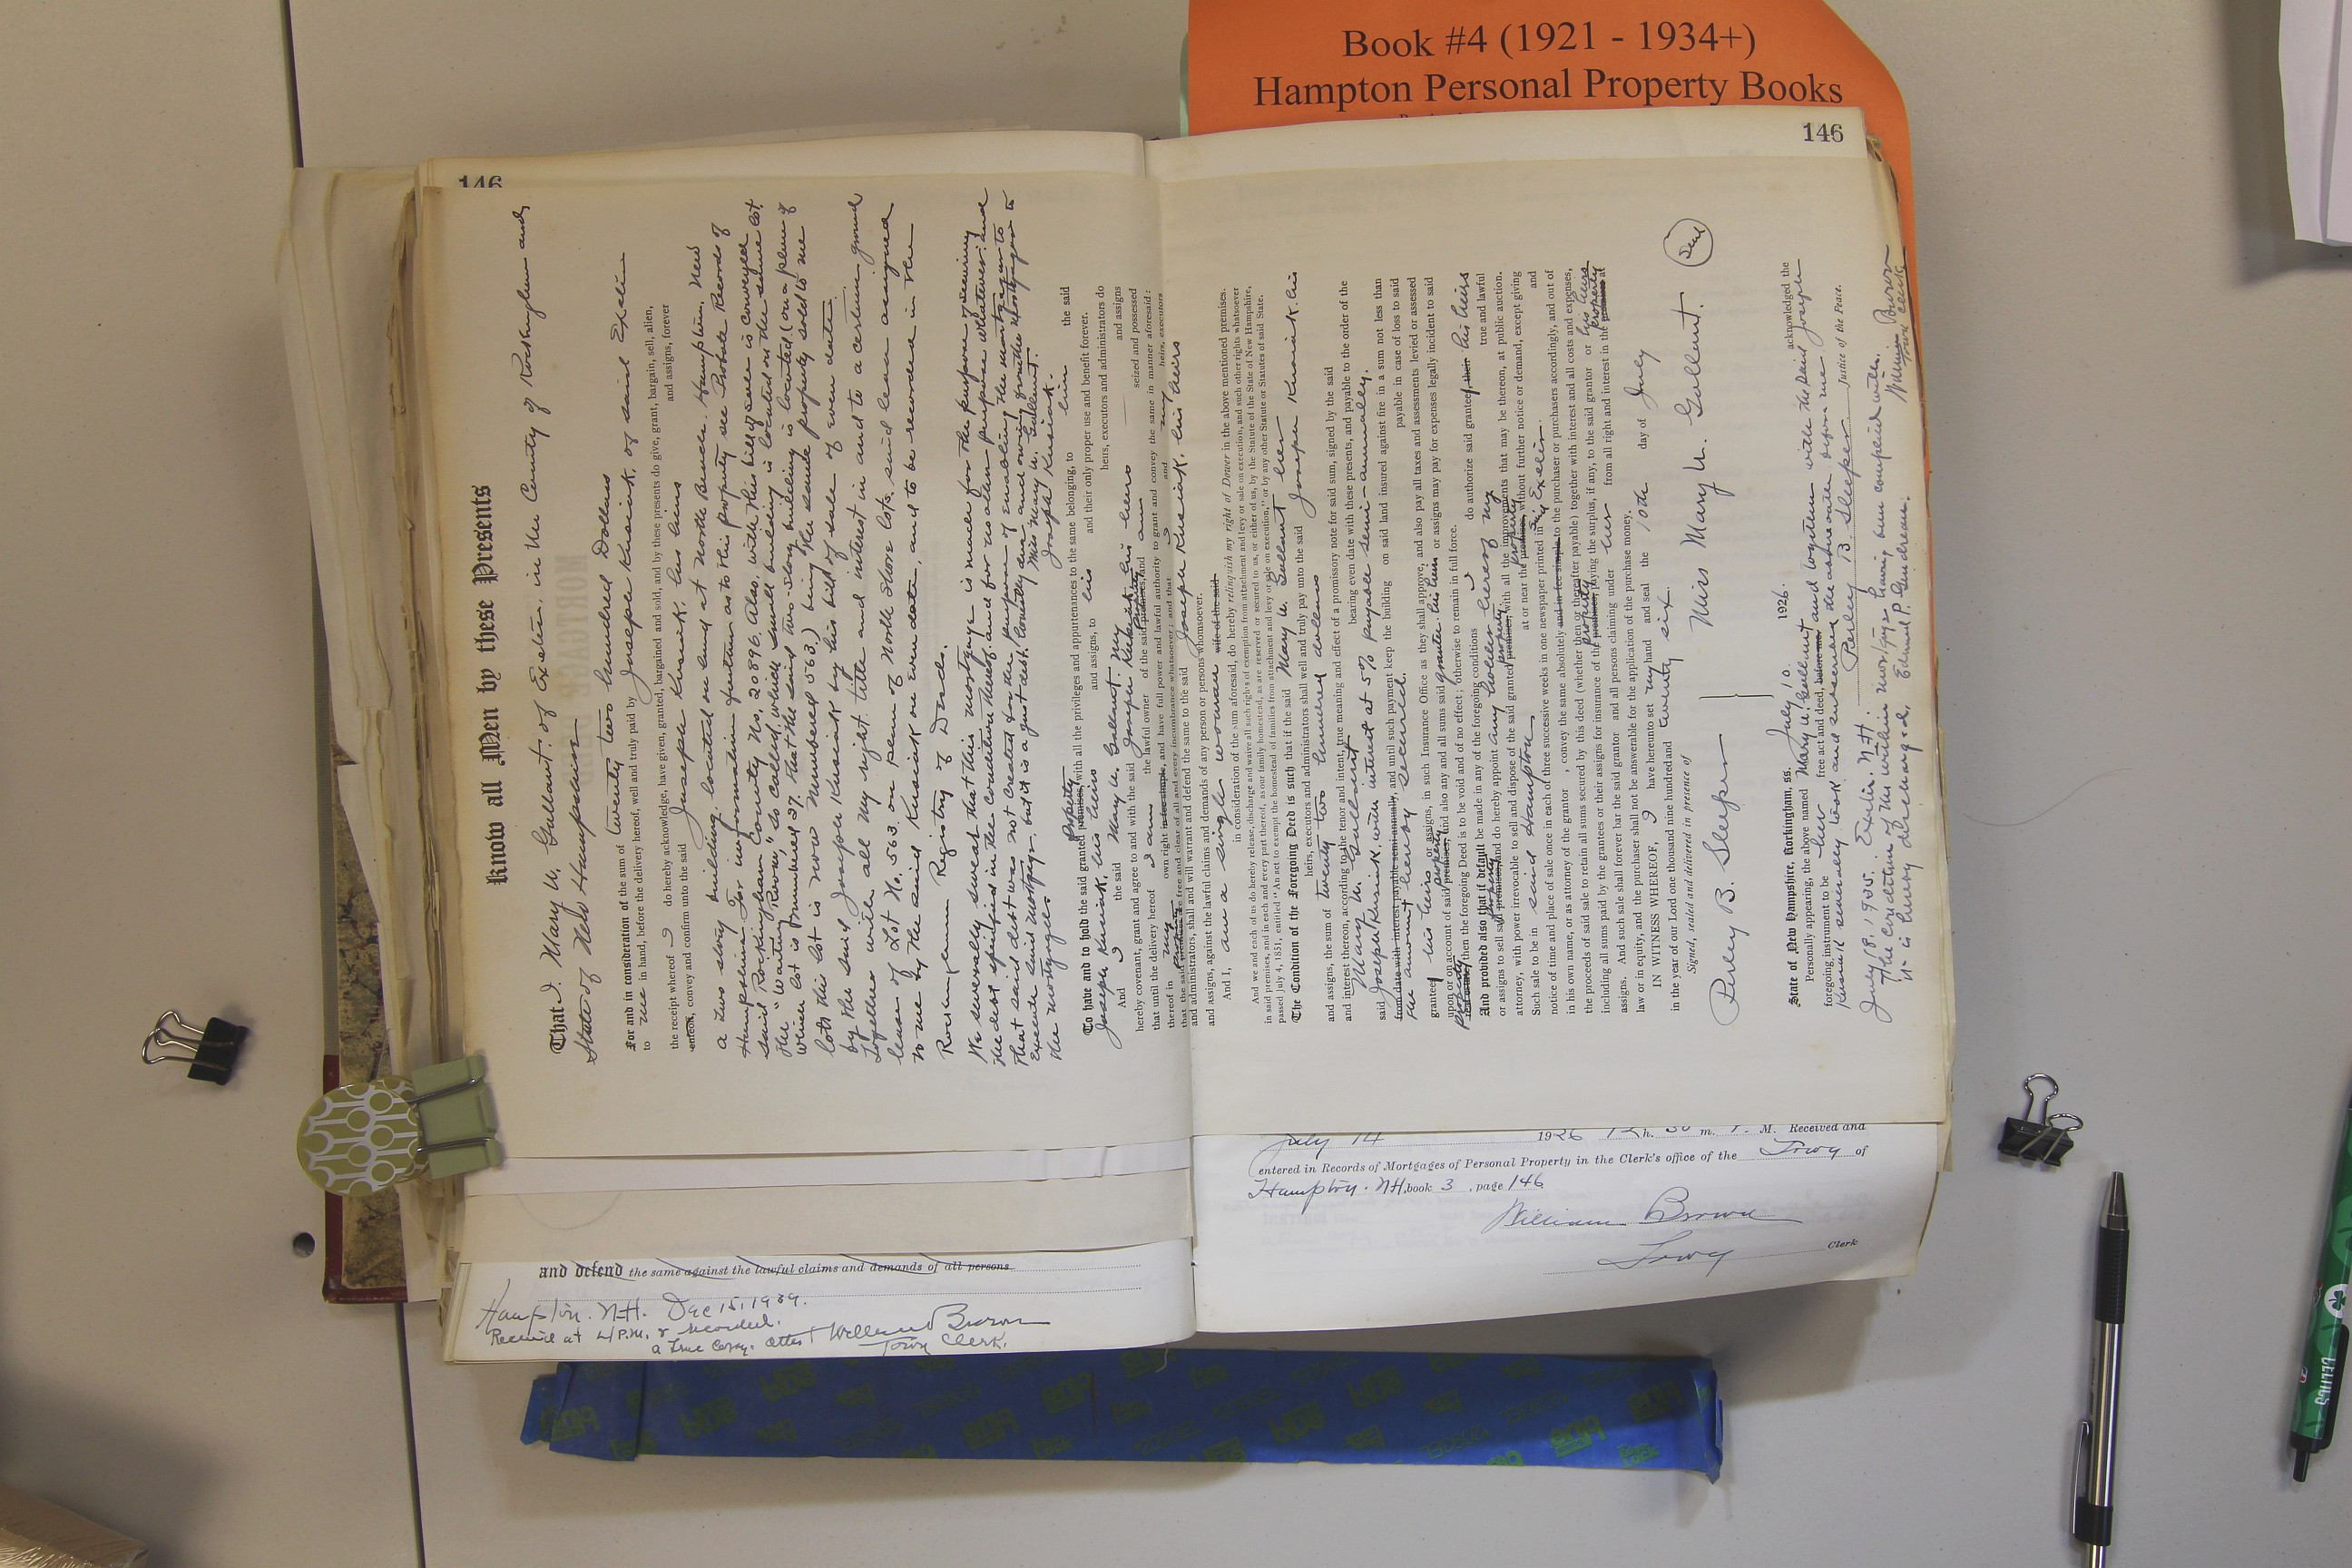 Book #4 (1921 - 1934+)
Hampton Personal Property Books
146
146
Know all Men by these Presents
That I, Mary U. Gallant, of Exeter, in the County of Rockingham and
State of New Hampshire
For and in consideration of the sum of twenty two hundred Dollars
to me in hand, before the delivery hereof, well and truly paid by Joseph Kusiak, of said Exeter
the receipt whereof I do hereby acknowledge, have given, granted, bargained and sold, and by these presents do give, grant, bargain, sell, alien,
enfeoff, convey and confirm unto the said Joseph Kusiak, his heirs and assigns, forever
a two story building, located on land at North Beach, Hampton, New
Hampshire. For information as to this property see Probate Records of
said Rockingham County No. 20896. Also, with this bill of sale is conveyed
the "Waiting Room," so called, which small building is located on the same lot
which lot is numbered 27. that the said two-story building is located (on a plan of
lots this lot is now numbered 563) being the same property sold to me
by the said Joseph Kusiak by his bill of sale of even date.
Together with all my right, title and interest in and to a certain ground
lease of Lot No. 563 on plan of North Shore lots, said lease assigned
to me by the said Kusiak on even date, and to be recorded in the
Rockingham Registry of Deeds.
We severally swear that this mortgage is made for the purpose of securing
the debt specified in the condition thereof, and for no other purpose whatever, and
that said debt was not created for the purpose of enabling the mortgagor to
execute said mortgage, but it is a just debt, honestly due and owing from the mortgagor to
the mortgagee
Miss Mary U. Gallant.
Joseph Kusiak.
To have and to hold the said granted premises, property with all the privileges and appurtenances to the same belonging, to him the said
Joseph Kusiak, his heirs and assigns, to his and their only proper use and benefit forever.
And I the said Mary U. Gallant, my heirs, executors and administrators do
hereby covenant, grant and agree to and with the said Joseph Kusiak, his heirs and assigns
that until the delivery hereof I am the lawful owner of the said premises, and property am seized and possessed
thereof in my own right in fee simple, and have full power and lawful authority to grant and convey the same in manner aforesaid;
that the said premises are free and clear of all and every incumbrance whatsoever; and that I and my heirs, executors
and administrators, shall and will warrant and defend the same to the said Joseph Kusiak, his heirs
and assigns, against the lawful claims and demands of any person or persons whomsoever.
And I, am a single woman wife of the said
in consideration of the sum aforesaid, do hereby relinquish my right of Dower in the above mentioned premises.
And we and each of us do hereby release, discharge and waive all such rights of exemption from attachment and levy or sale on execution, and such other rights whatsoever
in said premises, and in each and every part thereof, as our family homestead, as are reserved or secured to us, or either of us, by the Statute of the State of New Hampshire,
passed July 4, 1851, entitled "An act to exempt the homestead of families from attachment and levy or sale on execution," or by any other Statute or Statutes of said State.
The Condition of the Foregoing Deed is such that if the said Mary U. Gallant her
heirs, executors and administrators shall well and truly pay unto the said Joseph Kusiak his
and assigns, the sum of twenty two hundred dollars
and interest thereon, according to the tenor and intent, true meaning and effect of a promissory note for said sum, signed by the said
Mary U. Gallant bearing even date with these presents, and payable to the order of the
said Joseph Kusiak, with interest at 5% payable semi-annually.
from date with interest payable semi-annually, and until such payment keep the building on said land insured against fire in a sum not less than
the amount hereby secured. payable in case of loss to said
grantee, his heirs or assigns, in such Insurance Office as they shall approve; and also pay all taxes and assessments levied or assessed
upon or on account of said premises, property and also any and all sums said grantee his heirs or assigns may pay for expenses legally incident to said
then the foregoing Deed is to be void and of no effect; otherwise to remain in full force.
And provided also that if default be made in any of the foregoing conditions I do authorize said grantee, their his heirs
or assigns to sell said premises, property and do hereby appoint any holder hereof my true and lawful
attorney, with power irrevocable to sell and dispose of the said granted premises, property with all the improvements that may be thereon, at public auction.
Such sale to be in said Hampton at or near the premises, property without further notice or demand, except giving
notice of time and place of sale once in each of three successive weeks in one newspaper printed in said Exeter. and
in his own name, or as attorney of the grantor, convey the same absolutely and in fee simple to the purchaser or purchasers accordingly, and out of
the proceeds of said sale to retain all sums secured by this deed (whether then or thereafter payable) together with interest and all costs and expenses,
including all sums paid by the grantees or their assigns for insurance of the premises, property paying the surplus, if any, to the said grantor or his heirs
assigns. And such sale shall forever bar the said grantor and all persons claiming under her from all right and interest in the premises property at
law or in equity, and the purchaser shall not be answerable for the application of the purchase money.
IN WITNESS WHEREOF, I have hereunto set my hand and seal the 10th day of July
in the year of our Lord one thousand nine hundred and twenty six.
Signed, sealed and delivered in presence of
Perley B. Sleeper
Miss Mary U. Gallant.
Seal
State of New Hampshire, Rockingham, ss. July 10. 1926.
Personally appearing, the above named Mary U. Gallant acknowledged the
foregoing instrument to be her free act and deed, before me and together with the said Joseph
Kusiak severally took and subscribed the above oath before me
Perley B. Sleeper Justice of the Peace.
July 18, 1935. Exeter. N.H.
The condition of the within mortgage having been complied with,
it is hereby discharged,
William Brown
Town Clerk
July 14 1926 12 h. 30 m. P. M. Received and
entered in Records of Mortgages of Personal Property in the Clerk's office of the Town of
Hampton. N.H, book 3, page 146
William Brown
Town Clerk
and defend the same against the lawful claims and demands of all persons
Hampton. N.H. Dec 15, 1939.
Received at 4 P.M. & recorded.
a True Copy. Attest William Brown
Town Clerk.
CELTICS